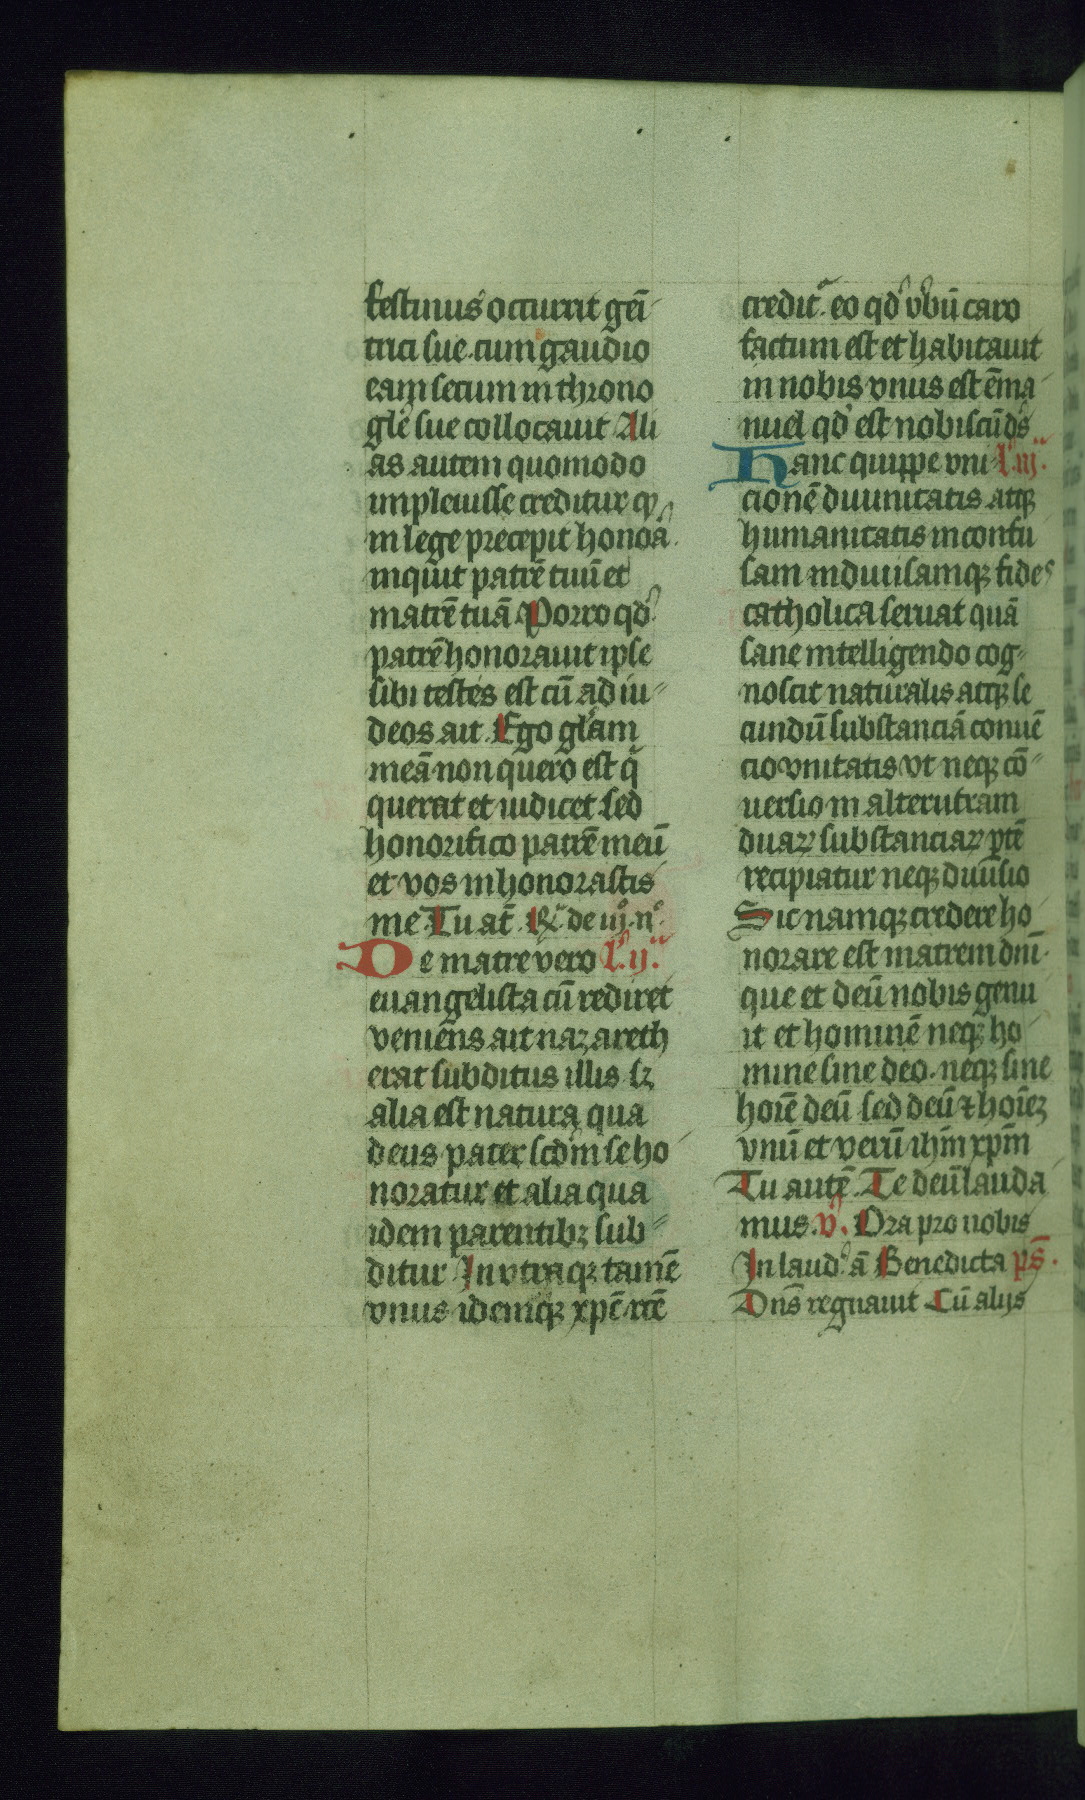 festinus occurrit gei̅
trici sue. cum gaudio
eam secum in throno
gl̅e sue collocauit Ali
as autem quomodo
impleuisse creditur q̅
in lege precepit honoa̅
inquit patre̅ tuu̅ et
matre̅ tua̅ Porro qd̾
patre̅ honorauit ipse
sibi testes est cu̅ ad iu
deos ait. Ego gl̅am
mea̅ non quero est q̅
querat et iudicet sed
honorifico patre̅ meu̅
et vos inhonorastis
me Tu at̅. R̸ de iij. nͦ.
De matre vero l̾. ij.
euangelista cu̅ rediret
venie̅ns ait nazareth
erat subditus illis sz
alia est natura qua
deus pater scd̅m se ho
noratur et alia qua
idem parentibꝫ sub
ditur In vtraqꝫ tame̅
vnus idemqꝫ xpc̅ rc̅e
credit᷑. eo qd̾ v̾bu̅ caro
factum est et habitauit
in nobis vnus est e̅ma
nuel qd̾ est nobiscu̅ ds̅
Hanc quippe vni l̾. iij.
cione̅ diuinitatis atqꝫ
humanitatis inconfu
sam indiuisamqꝫ fides
catholica seruat qua̅
sane intelligendo cog
noscit naturalis atqꝫ se
cundu̅ substancia̅ conue̅
cio vnitatis vt neqꝫ co̅
uersio in alterutram
duaꝝ substanciaꝝ p̱te̅
recipiatur neqꝫ diuisio
Sic namqꝫ credere ho
norare est matrem dni̅.
que et deu̅ nobis genu
it et homine̅ neqꝫ ho
mine sine deo. neqꝫ sine
hoi̅e deu̅ sed deu̅ ⁊ hoi̅eꝫ
vnu̅ et veru̅ ihm̅ xpm̅
Tu aute̅. Te deu̅ lauda
mus. v̾. Ora pro nobis
In laud̾ a̅ Benedicta ps̅.
Dns̅ regnauit Cu̅ alijs